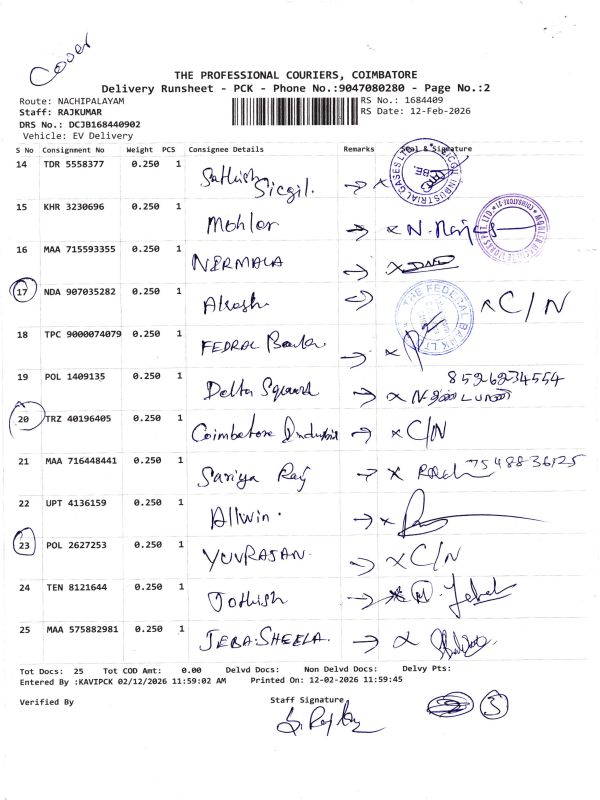 Cover
THE PROFESSIONAL COURIERS, COIMBATORE
Delivery Runsheet - PCK - Phone No.:9047080280 - Page No.:2
Route: NACHIPALAYAM
RS No.: 1684409
Staff: RAJKUMAR
RS Date: 12-Feb-2026
DRS No.: DCJB168440902
Vehicle: EV Delivery
S No Consignment No Weight PCS Consignee Details Remarks Seal & Signature
14 TDR 5558377 0.250 1 Sathish Sicgil. → x
15 KHR 3230696 0.250 1 Mohler → x N.
16 MAA 715593355 0.250 1 NIRMALA → x
17 NDA 907035282 0.250 1 Akash → x C/N
THE FEDERAL BANK LTD
18 TPC 9000074079 0.250 1 FEDRAL Bank → x
19 POL 1409135 0.250 1 Delta Square → x 8526234554
20 TRZ 40196405 0.250 1 Coimbatore → x C/N
21 MAA 716448441 0.250 1 Sariya Raj → x 7548836125
22 UPT 4136159 0.250 1 Allwin. → x
23 POL 2627253 0.250 1 YUVRAJAN. → x C/N
24 TEN 8121644 0.250 1 Jothish →
25 MAA 575882981 0.250 1 JEBA.SHEELA. → x
Tot Docs: 25 Tot COD Amt: 0.00 Delvd Docs: Non Delvd Docs: Delvy Pts:
Entered By :KAVIPCK 02/12/2026 11:59:02 AM Printed On: 12-02-2026 11:59:45
Verified By
Staff Signature
3